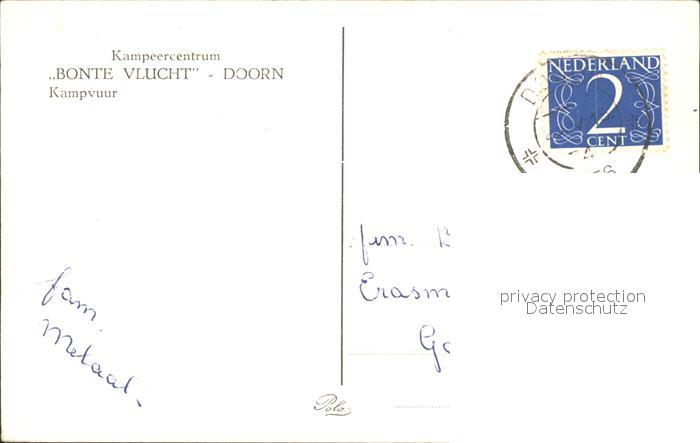 Kampeercentrum
„BONTE VLUCHT" - DOORN
Kampvuur
NEDERLAND
2
CENT
fam.
Metaal.
fam. B
Erasm
Go
privacy protection
Datenschutz
Polo